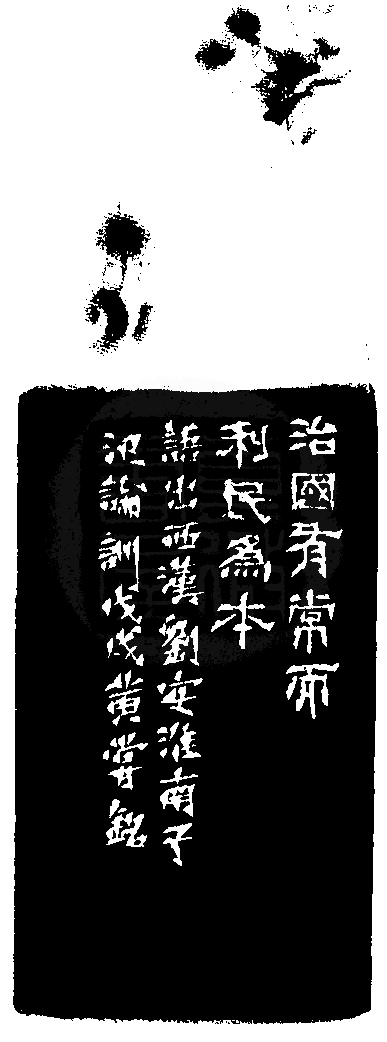 治國有常而
利民爲本
語出西漢劉安淮南子
氾論訓戊戌黃嘗銘